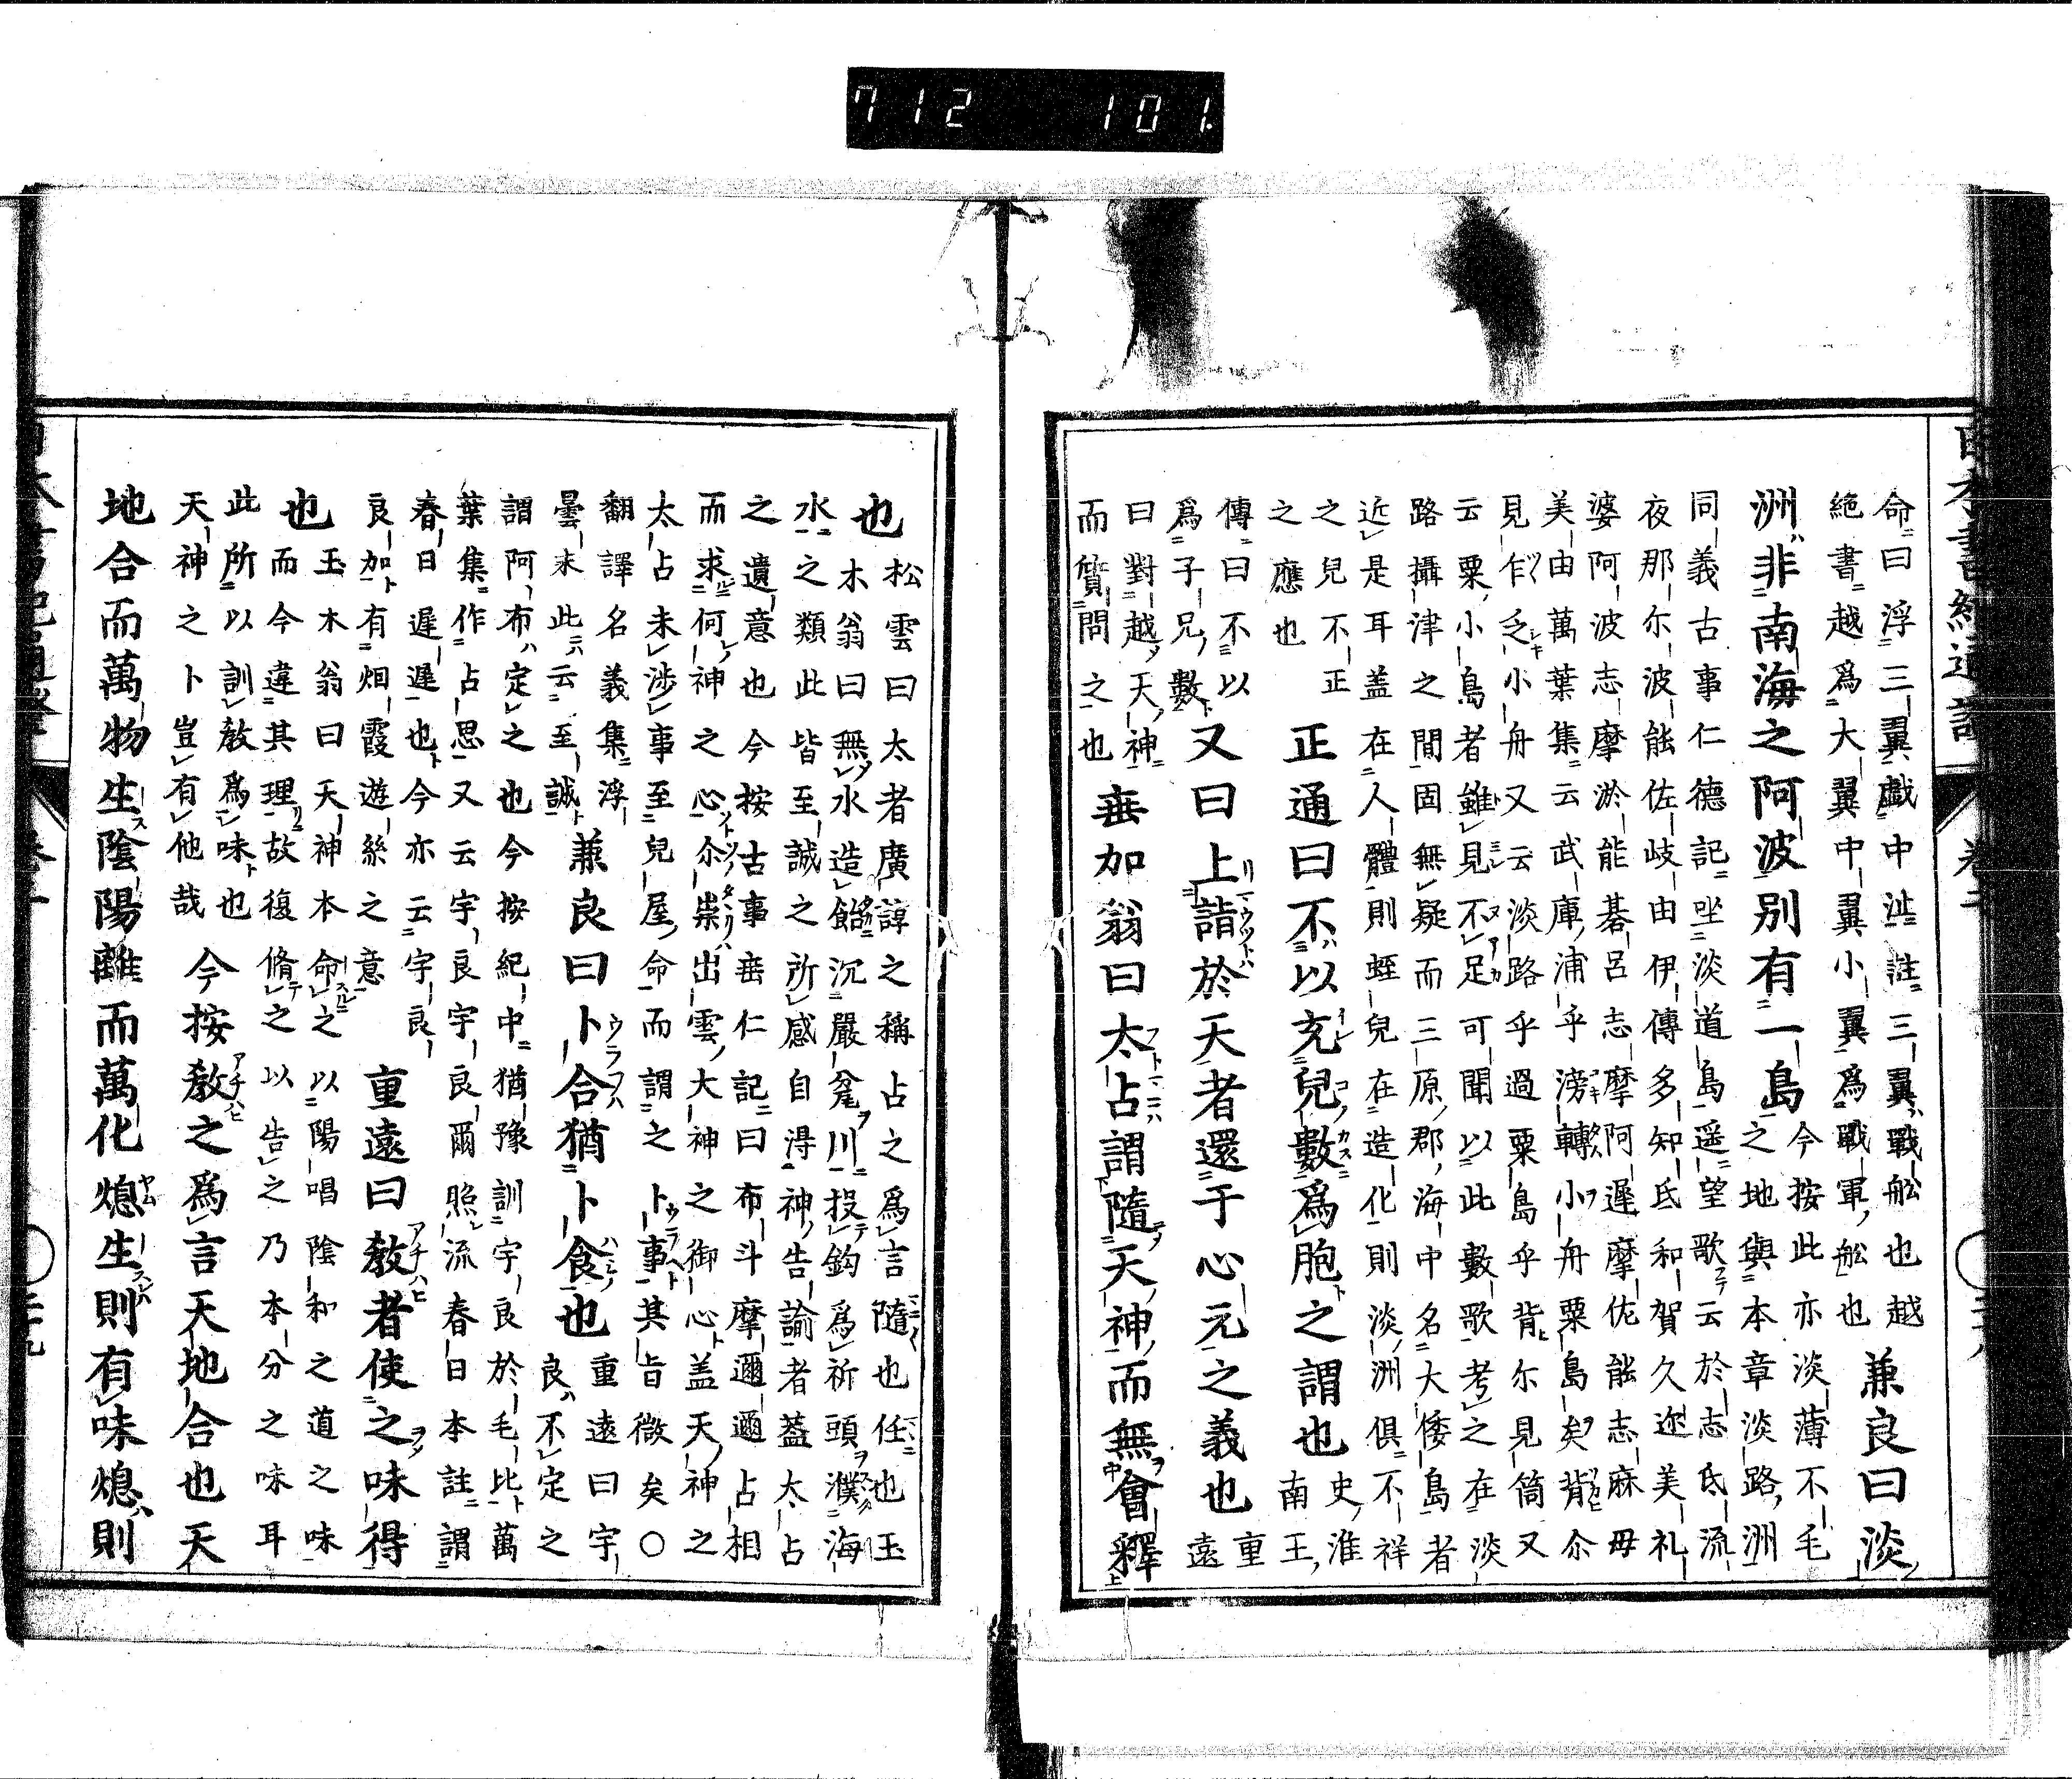 命曰浮三翼戯中沚註三翼戰舩也越
絶書越爲大翼中翼小翼爲戰軍舩也
兼良曰淡
洲非南海之阿波別有一島
今按此亦淡薄不毛
之地與本章淡路洲
同義古事仁德記坐淡道島遥望歌云於志氐流
夜那尓波能佐岐由伊傳多知氐和賀久迩美礼
婆阿波志摩淤能碁呂志摩阿遲摩佐能志麻毋
美由萬葉集云武庫浦乎滂轉小舟粟島矣背尒
見乍乏小舟又云淡路乎過粟島乎背尓見筒又
云粟小島者雖見不足可聞以此數歌考之在淡
路攝津之間固無疑而三原郡海中名大倭島者
近是耳盖在人體則蛭兒在造化則淡洲俱不祥
之兒不正
之應也
正通曰不以充兒數爲胞之謂也
史淮
南王
傳曰不以
爲子兄數
又曰上詣於天者還于心元之義也
重
遠
曰對越天神
而質問之也
垂加翁曰太占謂隨天神而無會釋
也
松雲曰太者廣諄之稱占之爲言隨也任也玉
木翁曰無水造餡沉嚴瓮川投鈎爲祈頭濮海
水之類此皆至誠之所感自得神告諭者蓋太占
之遺意也今按古事垂仁記曰布斗摩邇邇占相
而求何神之心尒祟出雲大神之御心盖天神之
太占未渉事至兒屋命而謂之卜事其旨微矣○
翻譯名義集浮
曇未此云至誠
兼良曰卜合猶卜食也
重遠曰宇
良不定之
謂阿布定之也今按紀中猶豫訓宇良於毛比萬
葉集作占思又云宇良宇良爾照流春日本註謂
春日遲遲也今亦云宇良
良加有烟霞遊絲之意
重遠曰教者使之味得
也
玉木翁曰天神本命之以陽唱陰和之道之味
而今違其理故復脩之以告之乃本分之味耳
此所以訓教爲味也
天神之卜豈有他哉
今按教之爲言天地合也天
地合而萬物生陰陽離而萬化熄生則有味熄則